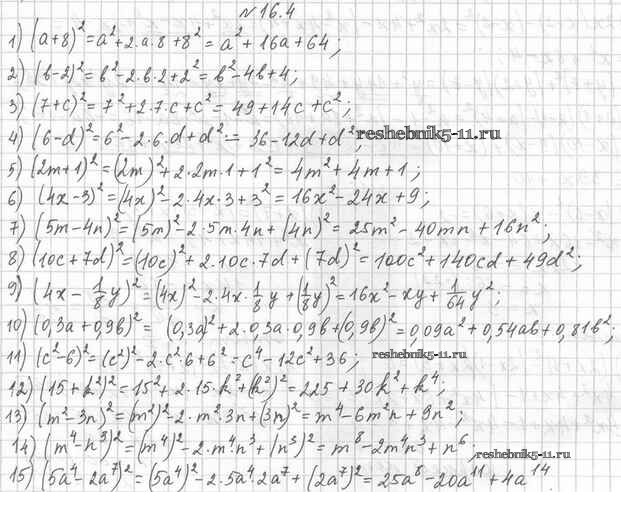 №16.4
1) (a+8)² = a²+2·a·8+8² = a²+16a+64;
2) (b-2)² = b²-2·b·2+2² = b²-4b+4;
3) (7+c)² = 7²+2·7·c+c² = 49+14c+c²;
4) (6-d)² = 6²-2·6·d+d² = 36-12d+d²; reshebnik5-11.ru
5) (2m+1)² = (2m)²+2·2m·1+1² = 4m²+4m+1;
6) (4x-3)² = (4x)²-2·4x·3+3² = 16x²-24x+9;
7) (5m-4n)² = (5m)²-2·5m·4n+(4n)² = 25m²-40mn+16n²;
8) (10c+7d)² = (10c)²+2·10c·7d+(7d)² = 100c²+140cd+49d²;
9) (4x-1/8y)² = (4x)²-2·4x·1/8y+(1/8y)² = 16x²-xy+1/64y²;
10) (0,3a+0,9b)² = (0,3a)²+2·0,3a·0,9b+(0,9b)² = 0,09a²+0,54ab+0,81b²;
11) (c²-6)² = (c²)²-2·c²·6+6² = c⁴-12c²+36; reshebnik5-11.ru
12) (15+k²)² = 15²+2·15·k²+(k²)² = 225+30k²+k⁴;
13) (m²-3n)² = (m²)²-2·m²·3n+(3n)² = m⁴-6m²n+9n²;
14) (m⁴-n³)² = (m⁴)²-2·m⁴·n³+(n³)² = m⁸-2m⁴n³+n⁶, reshebnik5-11.ru
15) (5a⁴-2a⁷)² = (5a⁴)²-2·5a⁴·2a⁷+(2a⁷)² = 25a⁸-20a¹¹+4a¹⁴